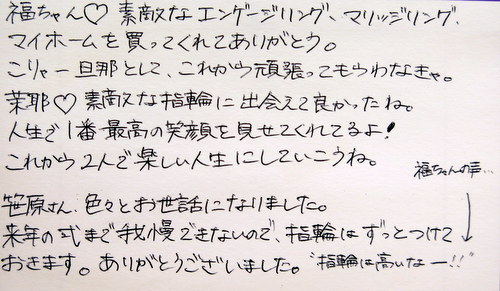 福ちゃん♡ 素敵なエンゲージリング、マリッジリング、
マイホームを買ってくれてありがとう。
こりゃ一旦那として、これから頑張ってもらわなきゃ。
茉耶♡ 素敵な指輪に出会えて良かったね。
人生で1番最高の笑顔を見せてくれてるよ!
これから2人で楽しい人生にしていこうね。
福ちゃんの声…
笹原さん、色々とお世話になりました。
来年の式まで我慢できないので、指輪はずっとつけて
おきます。ありがとうございました。
"指輪は高いなー!!"